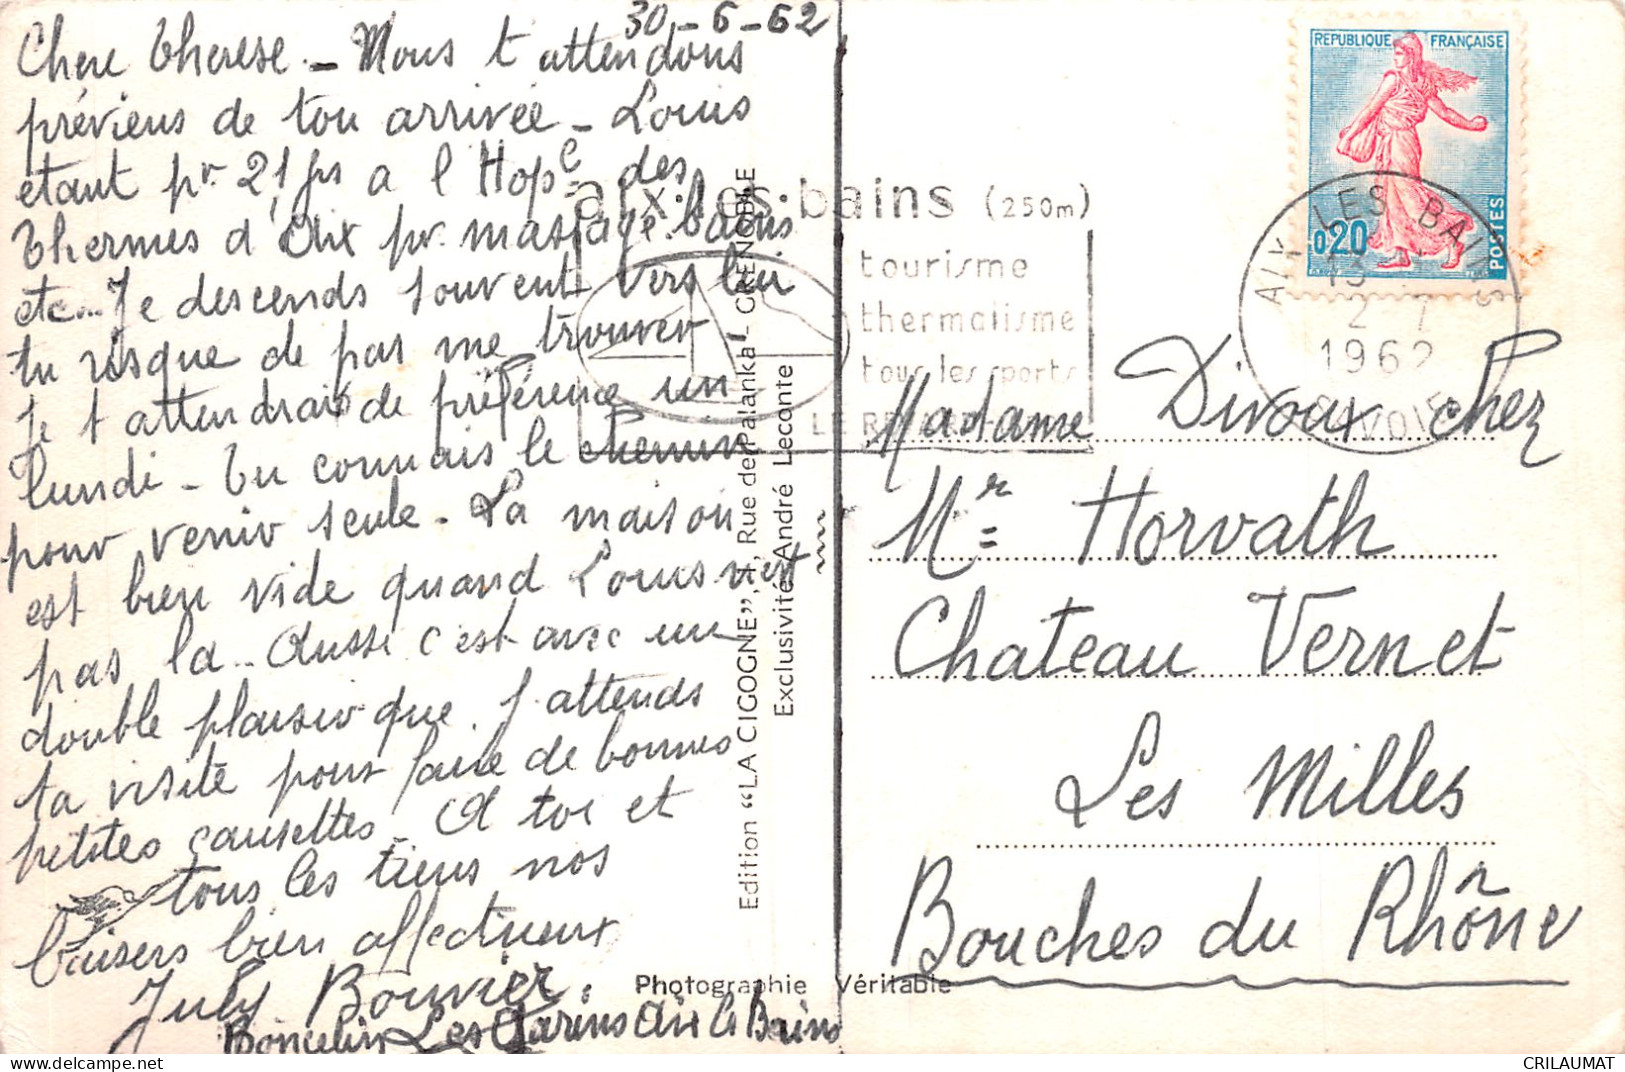 30-6-62
Chere Therese - Nous t attendons
préviens de ton arrivée - Louis
etant pr 21 jrs a l Hop. des
Thermes d Aix pr massage bains
etc... Je descends souvent vers lui
tu risque de pas me trouver
Je t attendrais de préférence un
lundi - Tu connais le chemin
pour venir seule - La maison
est bien vide quand Louis n est
pas la .. Aussi c est avec un
double plaisir que j attends
ta visite pour faire de bonnes
petites causettes - A toi et
tous les tiens nos
baisers bien affectueux
July Bouvier
Les Aix les Bains
Edition “LA CICOGNE”, 1, Rue de Palanka - GRENOBLE
Exclusivité André Leconte
Photographie Véritable
aix·les·bains (250m)
tourisme
thermalisme
tous les sports
LE REVARD
REPUBLIQUE FRANÇAISE
0,20
POSTES
AIX LES BAINS
2 - 7
1962
SAVOIE
Madame Divoux chez
Mr Horvath
Chateau Vernet
Les Milles
Bouches du Rhône
CRILAUMAT